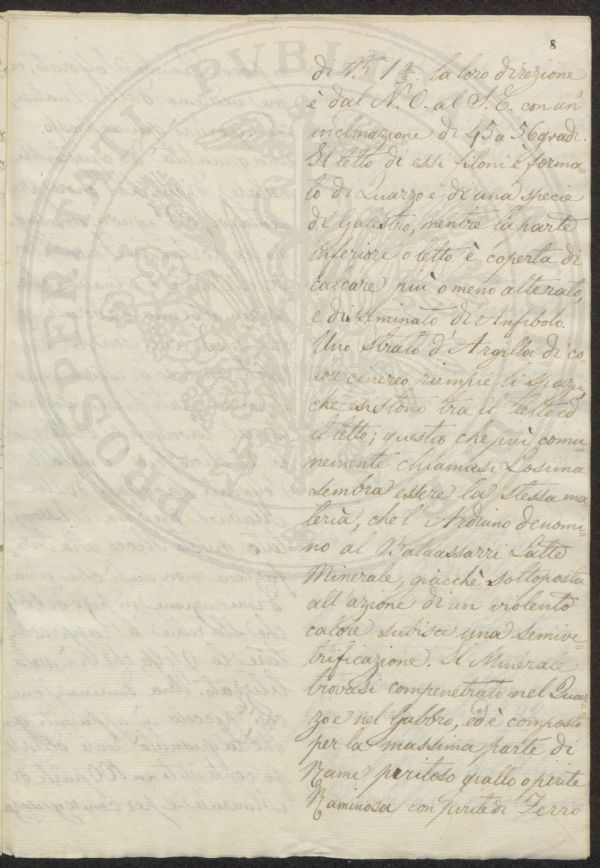 8
di B.ª 1 2/3. la loro direzione
è dal N. O. al S. E. con un'
inclinazione di 45 a 56 gradi.
Il letto di essi filoni è forma=
to di Quarzo e di una specie
di Galestro, mentre la parte
inferiore o letto è coperta di
calcare più o meno alterato,
e disseminato di Anfibolo.
Uno strato d'Argilla di co=
lor cinereo riempie li spazj,
che esistono tra il letto ed
il tetto; questa che più comu=
nemente chiamasi Losima
sembra essere la stessa ma=
teria, che l'Arduino denomi=
no al Baldassarri Latte
Minerale, giacchè sottoposta
all'azione di un violento
calore subisce una semivi=
trificazione. Il Minerale
trovasi compenetrato nel Quar=
zo e nel Gabbro, ed è composto
per la massima parte di
Rame piritoso giallo o pirite
Raminosa con pirite di Ferro
PROSPERITATI PUBLI